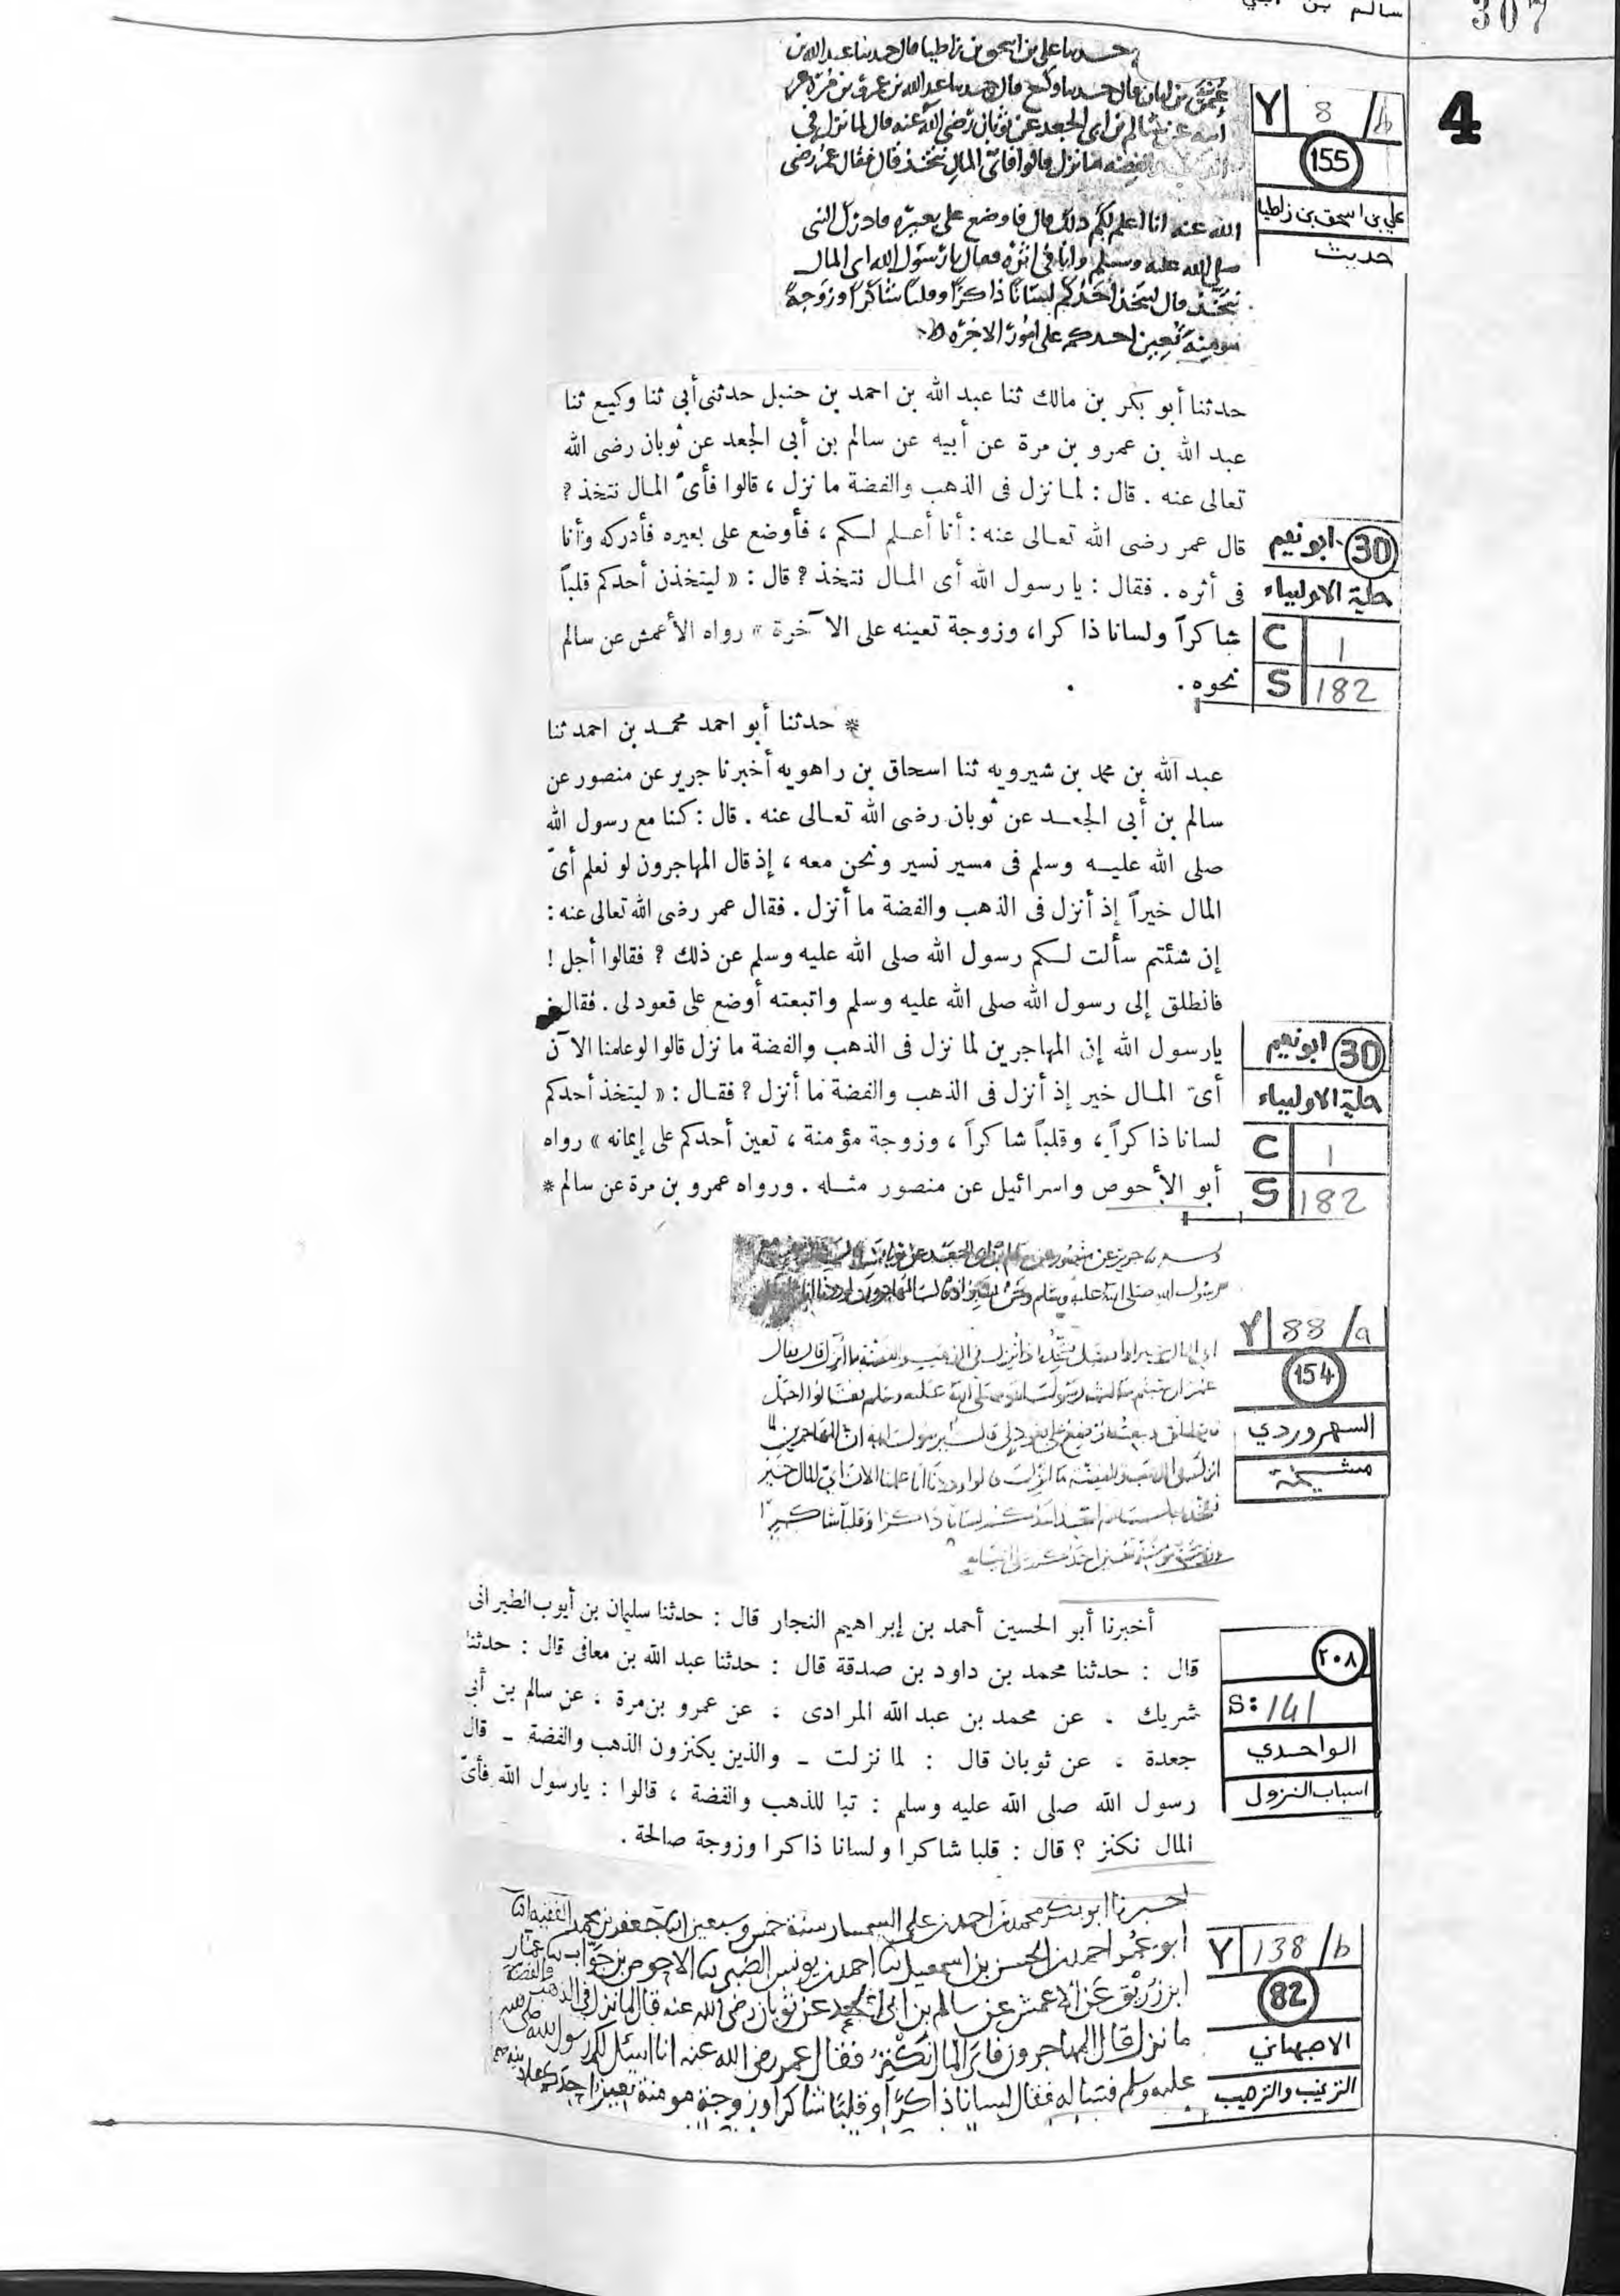 307
سالم بن ابي
4
حدثنا علي بن اسحق بن زاطيا قال حدثنا عبد الله بن
قال حدثنا وكيع قال حدثنا عبد الله بن عمرو بن مرة عن
ابيه عن سالم بن ابي الجعد عن ثوبان رضي الله عنه قال لما نزل في
والفضه ما نزل قالوا فاي المال نتخذ قال فقال عمر رضي
الله عنه انا اعلم لكم ذلك قال فاوضع على بعيره فادرك النبي
صلى الله عليه وسلم وانا في اثره فقال يا رسول الله اي المال
نتخذ قال ليتخذ احدكم لسانا ذاكرا وقلبا شاكرا وزوجة
مومنة تعين احدكم على امور الاخره
Y 8 /b
155
علي بن اسحق بن زاطيا
حديث
حدثنا أبو بكر بن مالك ثنا عبد الله بن احمد بن حنبل حدثنى أبى ثنا وكيع ثنا
عبد الله بن عمرو بن مرة عن أبيه عن سالم بن أبى الجعد عن ثوبان رضى الله
تعالى عنه . قال : لما نزل فى الذهب والفضة ما نزل ، قالوا فأىّ المال نتخذ ؟
قال عمر رضى الله تعالى عنه : أنا أعلم لكم ، فأوضع على بعيره فأدركه وأنا
فى أثره . فقال : يا رسول الله أى المال نتخذ ؟ قال : « ليتخذن أحدكم قلباً
شاكراً ولسانا ذاكرا، وزوجة تعينه على الآخرة » رواه الأعمش عن سالم
نحوه .
30 ابو نعيم
حلية الاولياء
C 1
S 182
* حدثنا أبو احمد محمد بن احمد ثنا
عبد الله بن محمد بن شيرويه ثنا اسحاق بن راهويه أخبرنا جرير عن منصور عن
سالم بن أبى الجعد عن ثوبان رضى الله تعالى عنه . قال : كنا مع رسول الله
صلى الله عليه وسلم فى مسير نسير ونحن معه ، إذ قال المهاجرون لو نعلم أىّ
المال خيراً إذ أنزل فى الذهب والفضة ما أنزل . فقال عمر رضى الله تعالى عنه :
إن شئتم سألت لكم رسول الله صلى الله عليه وسلم عن ذلك ؟ فقالوا أجل !
فانطلق إلى رسول الله صلى الله عليه وسلم واتبعته أوضع على قعود لى . فقال
يا رسول الله إن المهاجرين لما نزل فى الذهب والفضة ما نزل قالوا لو علمنا الآن
أىّ المال خير إذ أنزل فى الذهب والفضة ما أنزل ؟ فقال : « ليتخذ أحدكم
لسانا ذاكراً ، وقلباً شاكراً ، وزوجة مؤمنة ، تعين أحدكم على إيمانه » رواه
أبو الأحوص واسرائيل عن منصور مثله . ورواه عمرو بن مرة عن سالم *
30 ابو نعيم
حلية الاولياء
C 1
S 182
جرير عن منصور عن
رسول الله صلى الله عليه وسلم
Y 88 /a
154
السهروردي
مشيخة
أخبرنا أبو الحسين أحمد بن إبراهيم النجار قال : حدثنا سليمان بن أيوب الطبرانى
قال : حدثنا محمد بن داود بن صدقة قال : حدثنا عبد الله بن معافى قال : حدثنا
شريك ، عن محمد بن عبد الله المرادى ، عن عمرو بن مرة ، عن سالم بن أبى
جعدة ، عن ثوبان قال : لما نزلت ـ والذين يكنزون الذهب والفضة ـ قال
رسول الله صلى الله عليه وسلم : تبا للذهب والفضة ، قالوا : يا رسول الله فأىّ
المال نكنز ؟ قال : قلبا شاكرا ولسانا ذاكرا وزوجة صالحة .
٢٠٨
S: 141
الواحدي
اسباب النزول
اخبرنا ابو بكر محمد بن احمد بن علي السمسار سنة خمس وسبعين انا جعفر بن محمد الفقيه انا
ابو عمر احمد بن الحسن بن اسمعيل ثنا احمد بن يونس الضبي ثنا الاحوص بن جواب ثنا عمار
ابن زريق عن الاعمش عن سالم بن ابي الجعد عن ثوبان رضي الله عنه قال لما نزل في الذهب والفضة
ما نزل قال المهاجرون فاي المال نكنز فقال عمر رضي الله عنه انا اسئل لكم رسول الله صلى الله
عليه وسلم فسأله فقال لسانا ذاكرا وقلبا شاكرا وزوجة مومنة تعين احدكم على دينه
Y 138 /b
82
الاصبهاني
الترغيب والترهيب